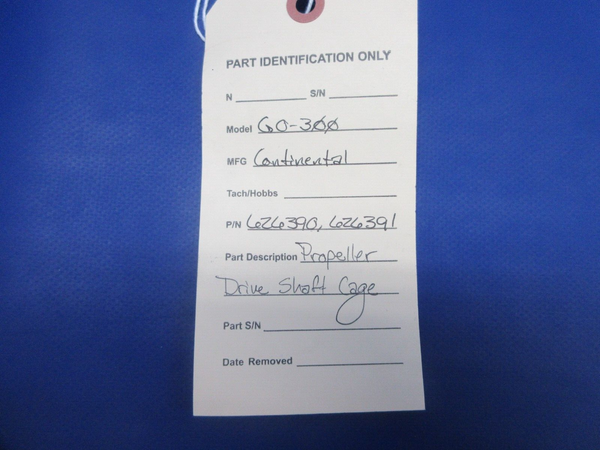 PART IDENTIFICATION ONLY
N ____________ S/N ____________
Model GO-300
MFG Continental
Tach/Hobbs ____________
P/N 626390, 626391
Part Description Propeller
Drive Shaft Cage
Part S/N ____________
Date Removed ____________